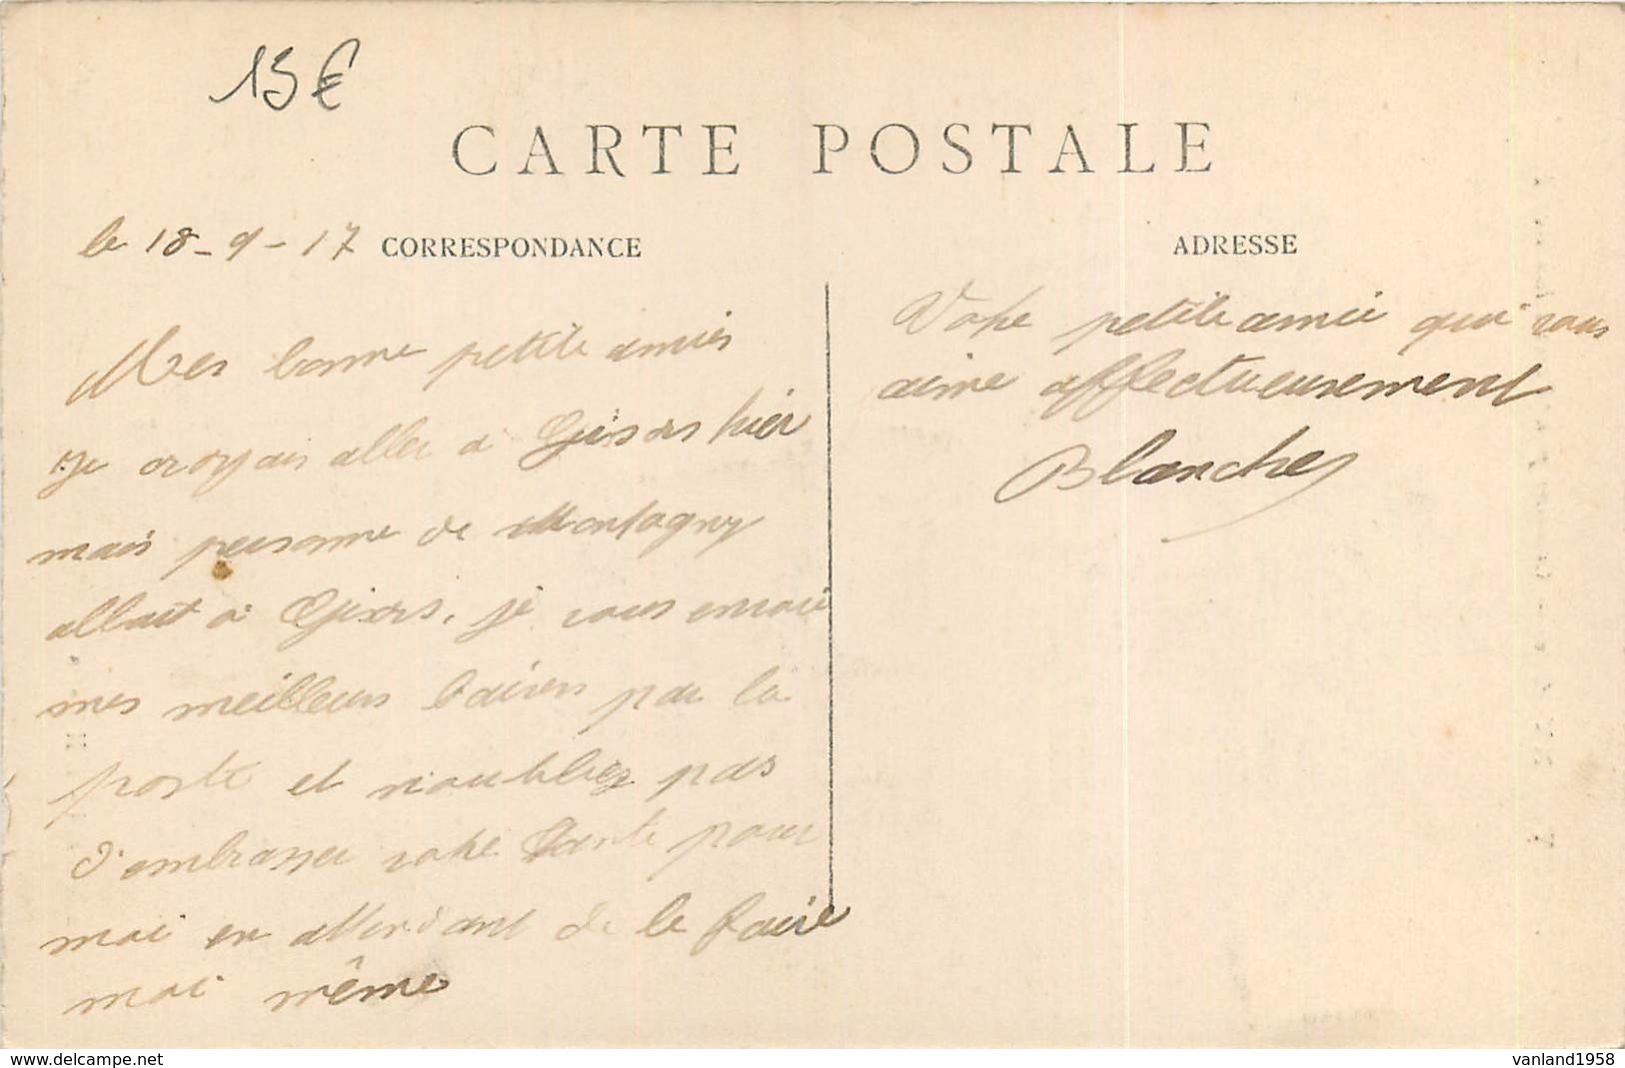 15€
CARTE POSTALE
le 18-9-17 CORRESPONDANCE
Mes bonne petite amies
Je croyais aller a Gisors hier
mais personne de Montagny
allait a Gisors, je vous envoie
mes meilleurs baisers par la
poste et n'oubliez pas
d'embrasser votre Tante pour
moi en attendant de le faire
moi même
ADRESSE
Votre petite amie qui vous
aime affectueusement
Blanche
www.delcampe.net
vanland1958